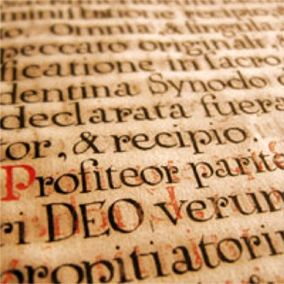 ministratione
Omnia, & singula
peccato originali,
ficatione in sacro
dentina Synodo
declarata fuera
tor, & recipio.
Profiteor parite
ri DEO verum
propitiatoriu